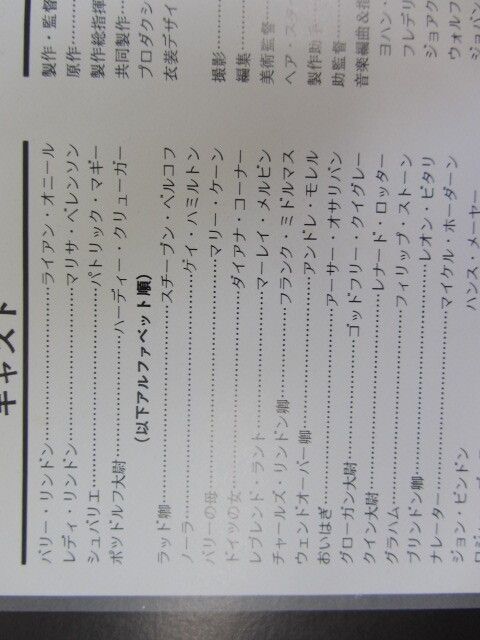 キャスト
バリー・リンドン……ライアン・オニール
レディ・リンドン……マリサ・ベレンソン
シュバリエ……パトリック・マギー
ポツドルフ大尉……ハーディー・クリューガー
(以下アルファベット順)
ラッド卿……スチーブン・ベルコフ
ノーラ……ゲイ・ハミルトン
バリーの母……マリー・ケーン
ドイツの女……ダイアナ・コーナー
レブレンド・ラント……マーレイ・メルビン
チャールズ・リンドン卿……フランク・ミドルマス
ウェンドオーバー卿……アンドレ・モレル
おいはぎ……アーサー・オサリバン
グローガン大尉……ゴッドフリー・クイグレー
クイン大尉……レナード・ロッター
グラハム……フィリップ・ストーン
ブリンドン卿……レオン・ビタリ
ナレーター……マイケル・ホーダーン
ジョン・ビンドン
ハンス・メーヤー
製作・監督
原作……
製作総指揮
共同製作…
プロダクシ
衣装デザイ
撮影……
編集……
美術監督…
ヘア・スタ
製作助手…
助監督……
音楽編曲&指
ヨハン・
フレデリ
ジョアク
ウォルフ
ジョバン